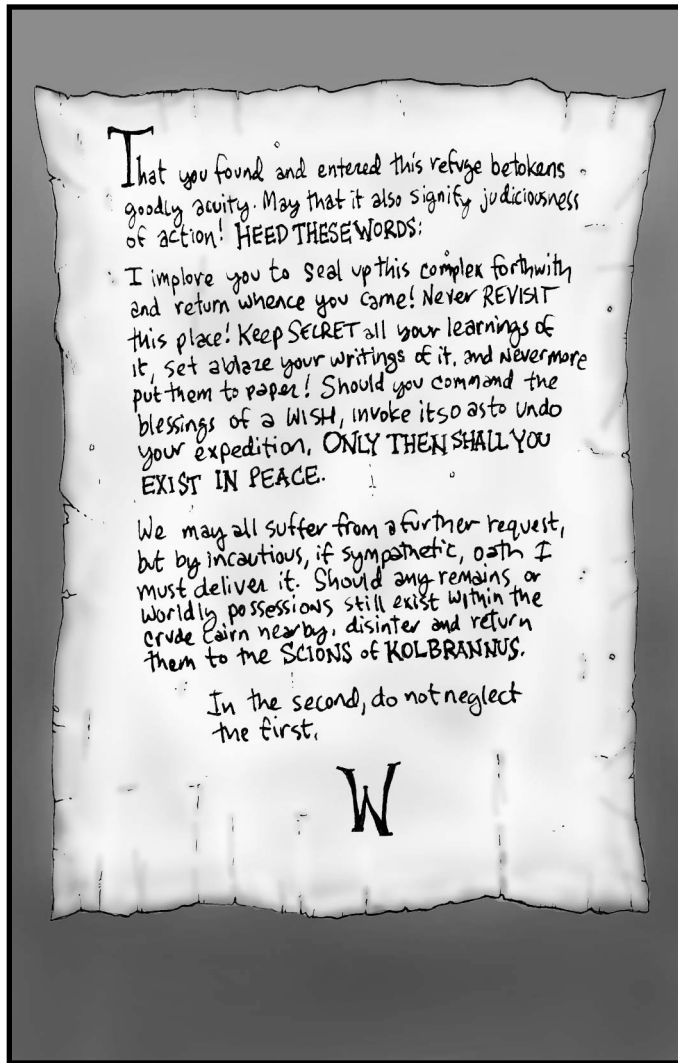 That you found and entered this refuge betokens
goodly acuity. May that it also signify judiciousness
of action! HEED THESE WORDS:
I implore you to seal up this complex forthwith
and return whence you came! Never REVISIT
this place! Keep SECRET all your learnings of
it, set ablaze your writings of it, and nevermore
put them to paper! Should you command the
blessings of a WISH, invoke it so as to undo
your expedition. ONLY THEN SHALL YOU
EXIST IN PEACE.
We may all suffer from a further request,
but by incautious, if sympathetic, oath I
must deliver it. Should any remains or
worldly possessions still exist within the
crude cairn nearby, disinter and return
them to the SCIONS of KOLBRANNUS.
In the second, do not neglect
the first.
W